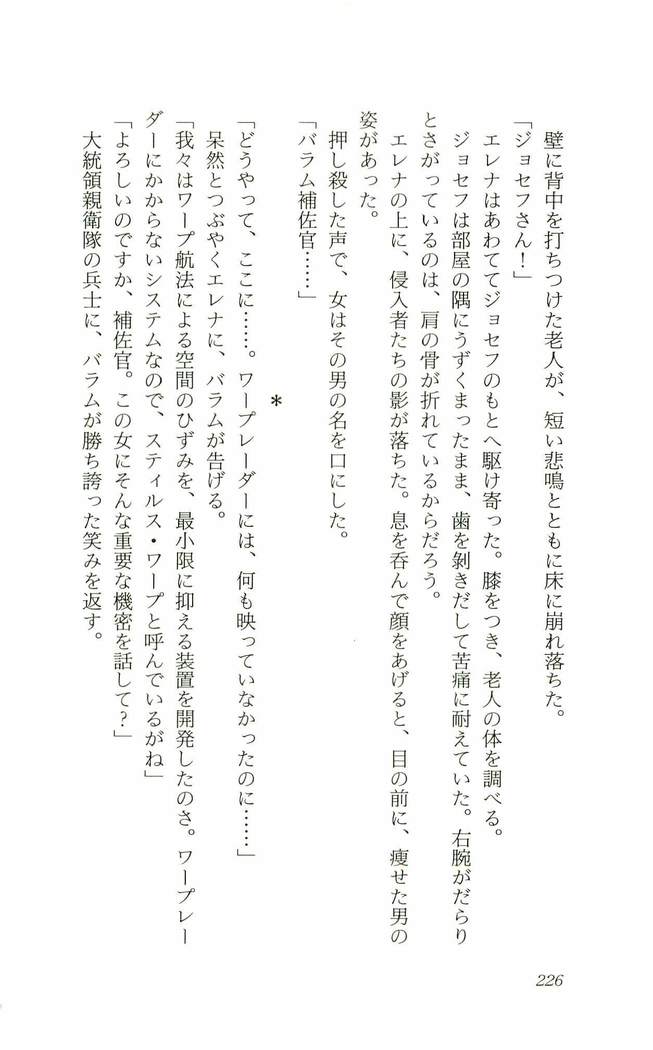 壁に背中を打ちつけた老人が、短い悲鳴とともに床に崩れ落ちた。
「ジョセフさん！」
エレナはあわててジョセフのもとへ駆け寄った。膝をつき、老人の体を調べる。
ジョセフは部屋の隅にうずくまったまま、歯を剝きだして苦痛に耐えていた。右腕がだらり
とさがっているのは、肩の骨が折れているからだろう。
エレナの上に、侵入者たちの影が落ちた。息を呑んで顔をあげると、目の前に、痩せた男の
姿があった。
押し殺した声で、女はその男の名を口にした。
「バラム補佐官……」
＊
「どうやって、ここに……。ワープレーダーには、何も映っていなかったのに……」
呆然とつぶやくエレナに、バラムが告げる。
「我々はワープ航法による空間のひずみを、最小限に抑える装置を開発したのさ。ワープレー
ダーにかからないシステムなので、スティルス・ワープと呼んでいるがね」
「よろしいのですか、補佐官。この女にそんな重要な機密を話して？」
大統領親衛隊の兵士に、バラムが勝ち誇った笑みを返す。
226